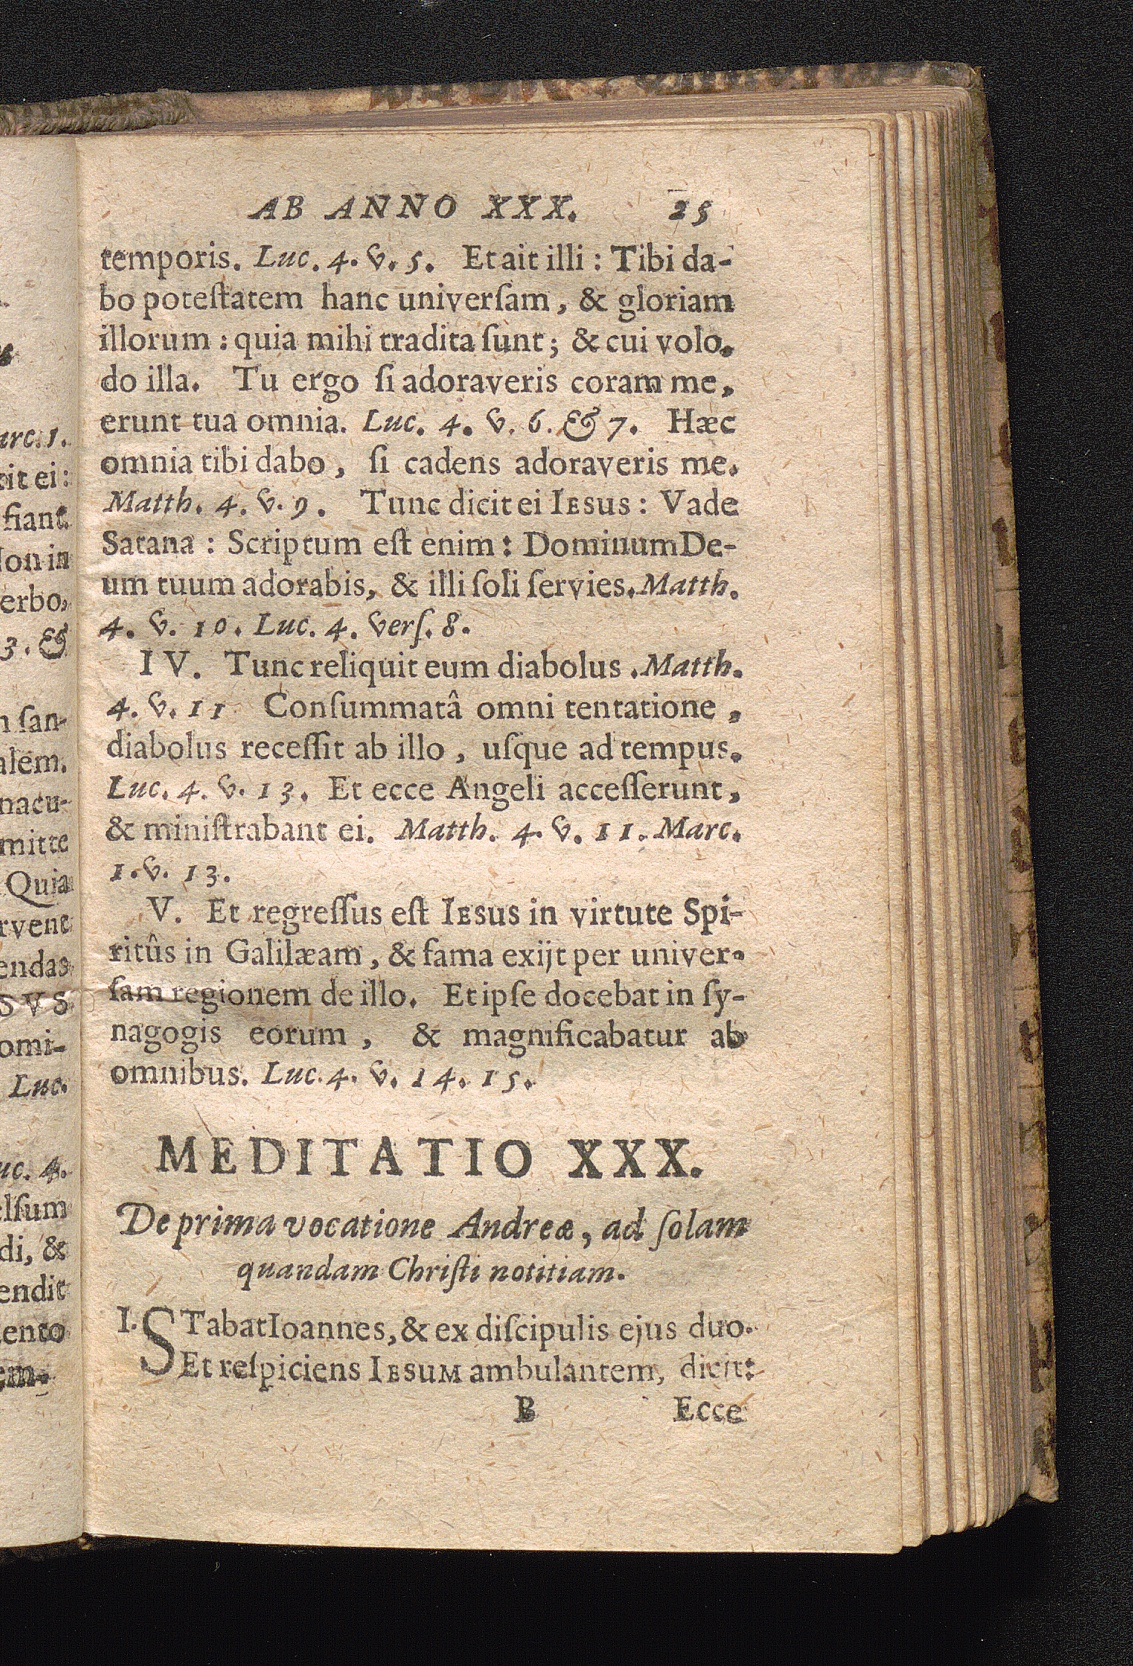 AB ANNO XXX. 25
temporis. Luc. 4. v. 5. Et ait illi : Tibi da-
bo poteſtatem hanc univerſam, & gloriam
illorum : quia mihi tradita ſunt; & cui volo.
do illa. Tu ergo ſi adoraveris coram me,
erunt tua omnia. Luc. 4. v. 6. & 7. Hæc
omnia tibi dabo, ſi cadens adoraveris me.
Matth. 4. v. 9. Tunc dicit ei IESUS : Vade
Satana : Scriptum eſt enim : Dominum De-
um tuum adorabis, & illi ſoli ſervies. Matth.
4. v. 10. Luc. 4. verſ. 8.
IV. Tunc reliquit eum diabolus. Matth.
4. v. 11 Conſummatâ omni tentatione,
diabolus receſſit ab illo, uſque ad tempus.
Luc. 4. v. 13. Et ecce Angeli acceſſerunt,
& miniſtrabant ei. Matth. 4. v. 11. Marc.
1. v. 13.
V. Et regreſſus eſt IESUS in virtute Spi-
ritûs in Galilæam, & fama exijt per univer-
ſam regionem de illo. Et ipſe docebat in ſy-
nagogis eorum, & magnificabatur ab
omnibus. Luc. 4. v. 14. 15.
MEDITATIO XXX.
De prima vocatione Andreæ, ad ſolam
quandam Chriſti notitiam.
I. STabat Ioannes, & ex diſcipulis ejus duo.
Et reſpiciens IESUM ambulantem, dicit:
B Ecce